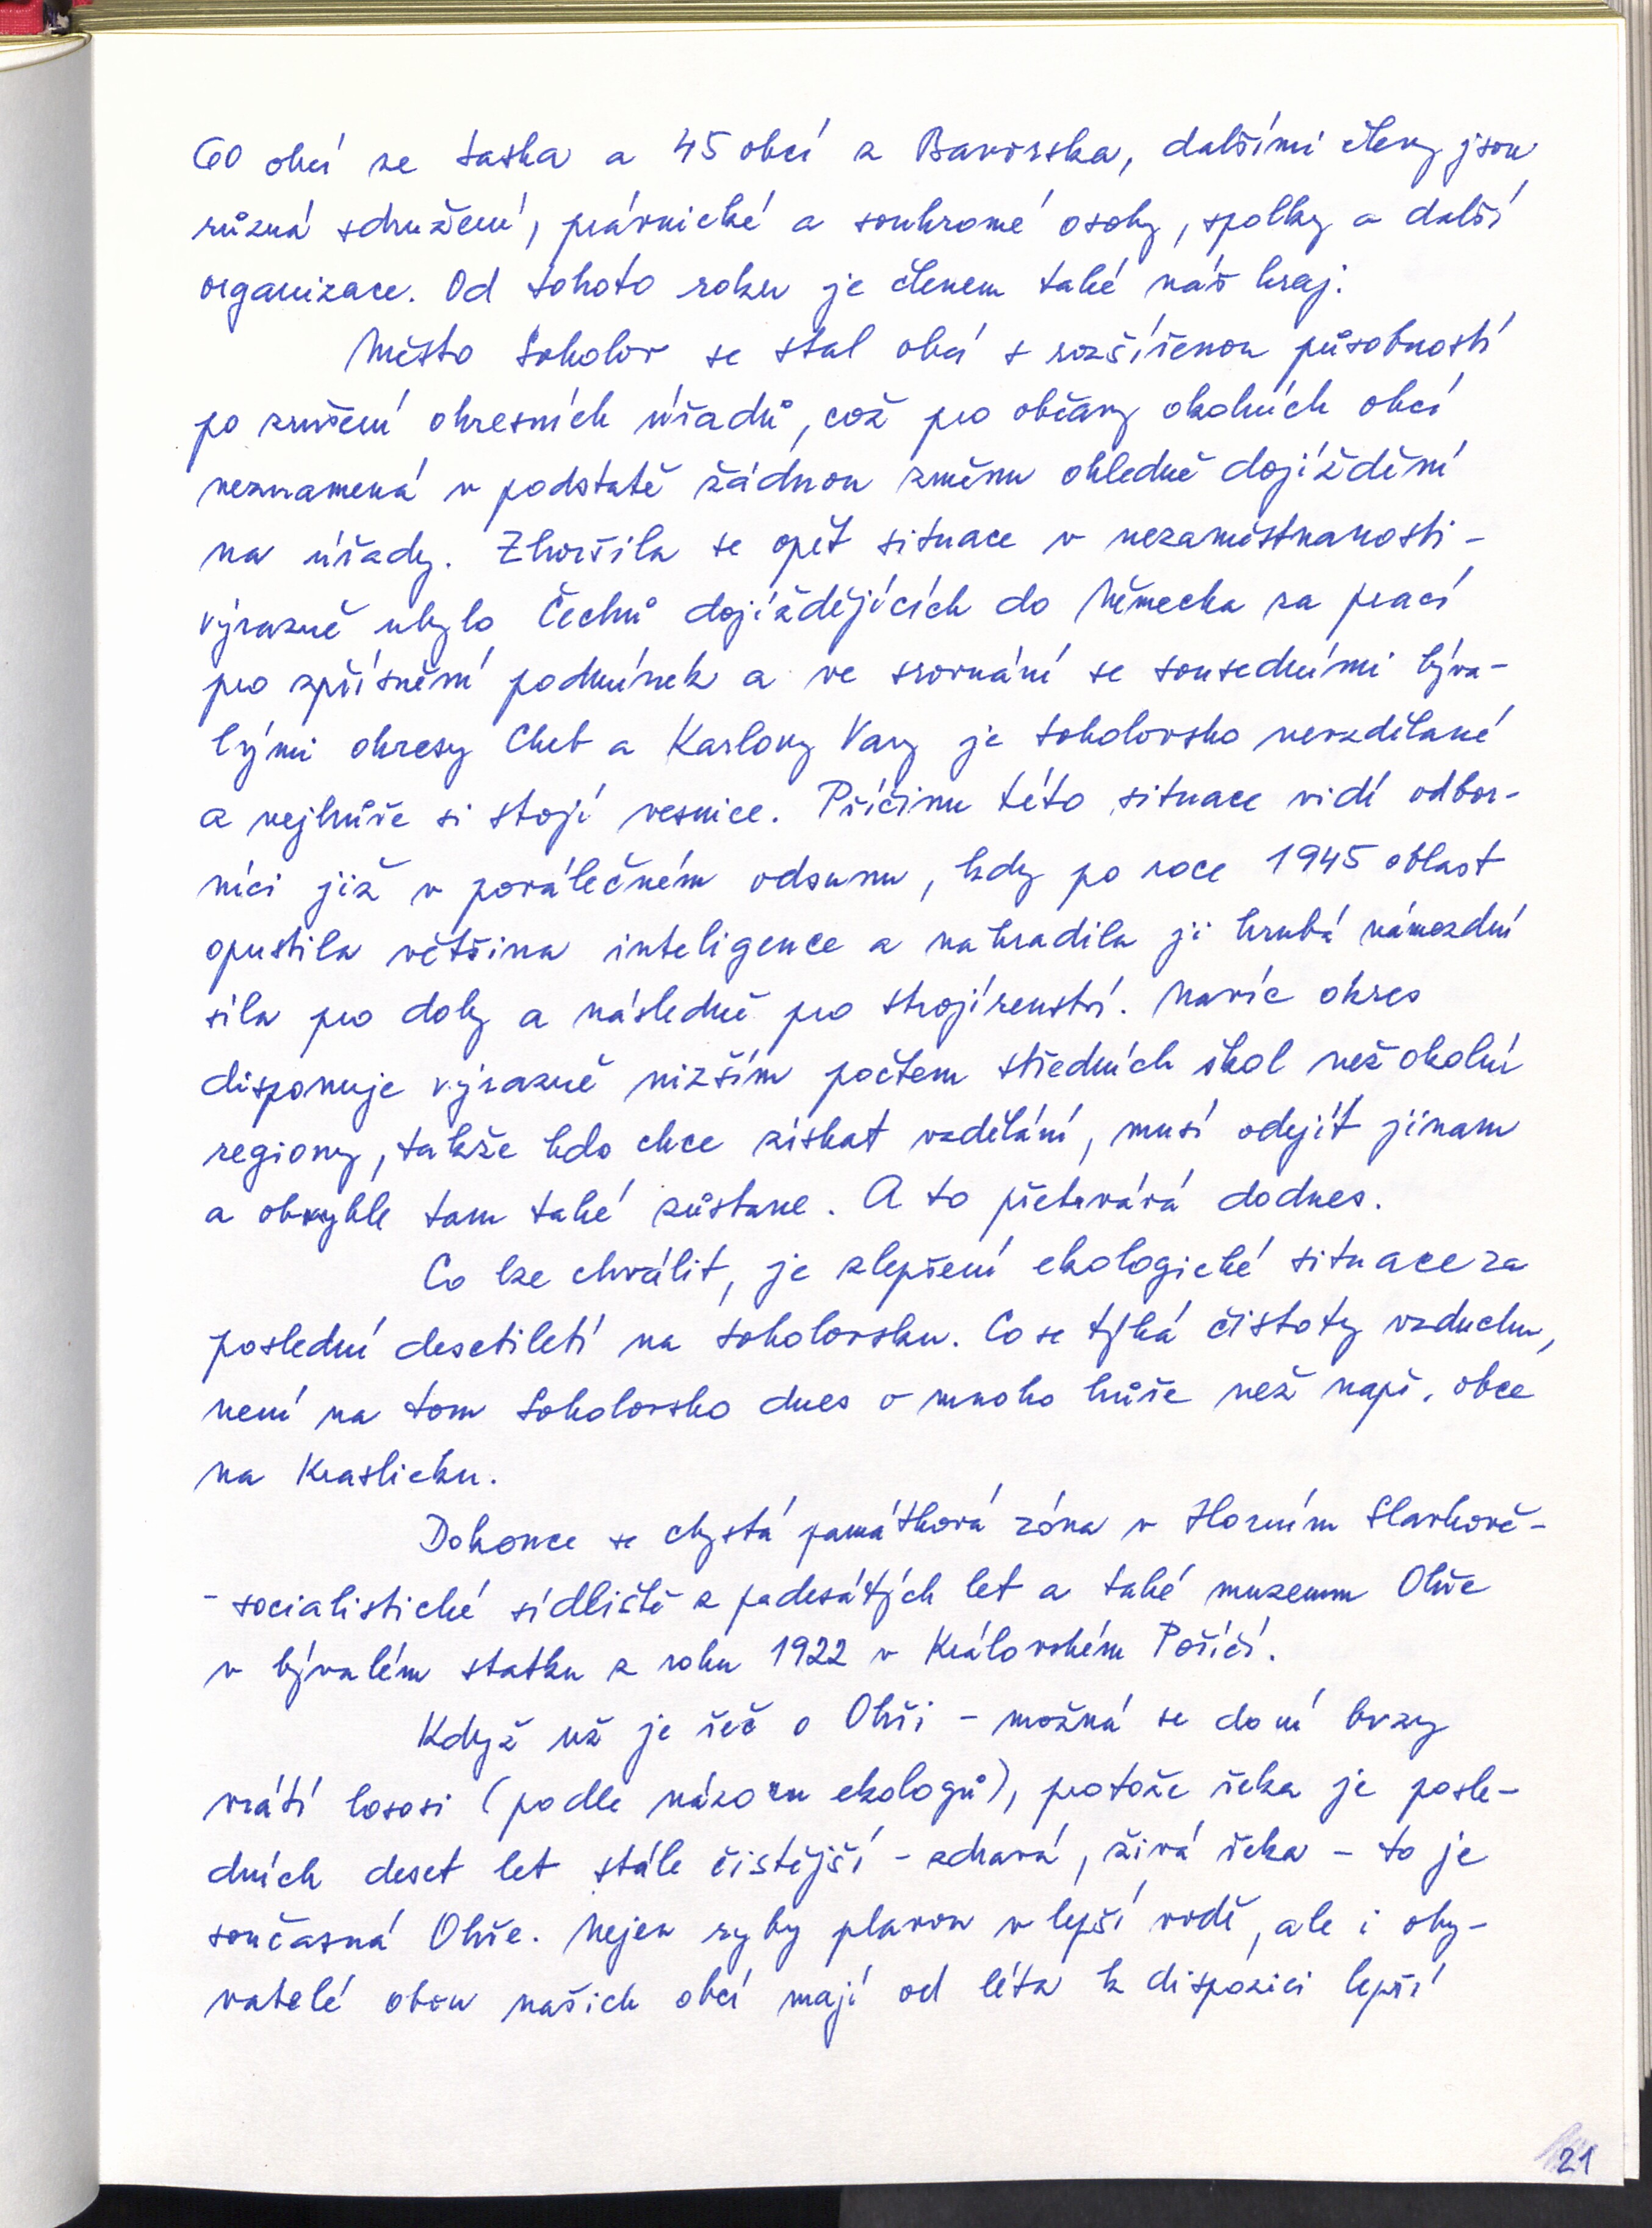 60 obcí ze Saska a 45 obcí z Bavorska, dalšími členy jsou
různá sdružení, právnické a soukromé osoby, spolky a další
organizace. Od tohoto roku je členem také náš kraj.
Město Sokolov se stal obcí s rozšířenou působností
po zrušení okresních úřadů, což pro občany okolních obcí
neznamená v podstatě žádnou změnu ohledně dojíždění
na úřady. Zhoršila se opět situace v nezaměstnanosti -
výrazně ubylo Čechů dojíždějících do Německa za prací
pro zpřísnění podmínek a ve srovnání se sousedními býva-
lými okresy Cheb a Karlovy Vary je Sokolovsko nevzdělané
a nejhůře si stojí vesnice. Příčinu této situace vidí odbor-
níci již v poválečném odsunu, kdy po roce 1945 oblast
opustila většina inteligence a nahradila ji hrubá námezdní
síla pro doly a následně pro strojírenství. Navíc okres
disponuje výrazně nižším počtem středních škol než okolní
regiony, takže kdo chce získat vzdělání, musí odejít jinam
a obvykle tam také zůstane. A to přetrvává dodnes.
Co lze chválit, je zlepšení ekologické situace za
poslední desetiletí na Sokolovsku. Co se týká čistoty vzduchu,
není na tom Sokolovsko dnes o mnoho hůře než např. obce
na Kraslicku.
Dokonce se chystá památková zóna v Horním Slavkově -
- socialistické sídliště z padesátých let a také muzeum Ohře
v bývalém statku z roku 1922 v Královském Poříčí.
Když už je řeč o Ohři - možná se do ní brzy
vrátí lososi (podle názoru ekologů), protože řeka je posle-
dních deset let stále čistější - zdravá, živá řeka - to je
současná Ohře. Nejen ryby plavou v lepší vodě, ale i oby-
vatelé obou našich obcí mají od léta k dispozici lepší
21